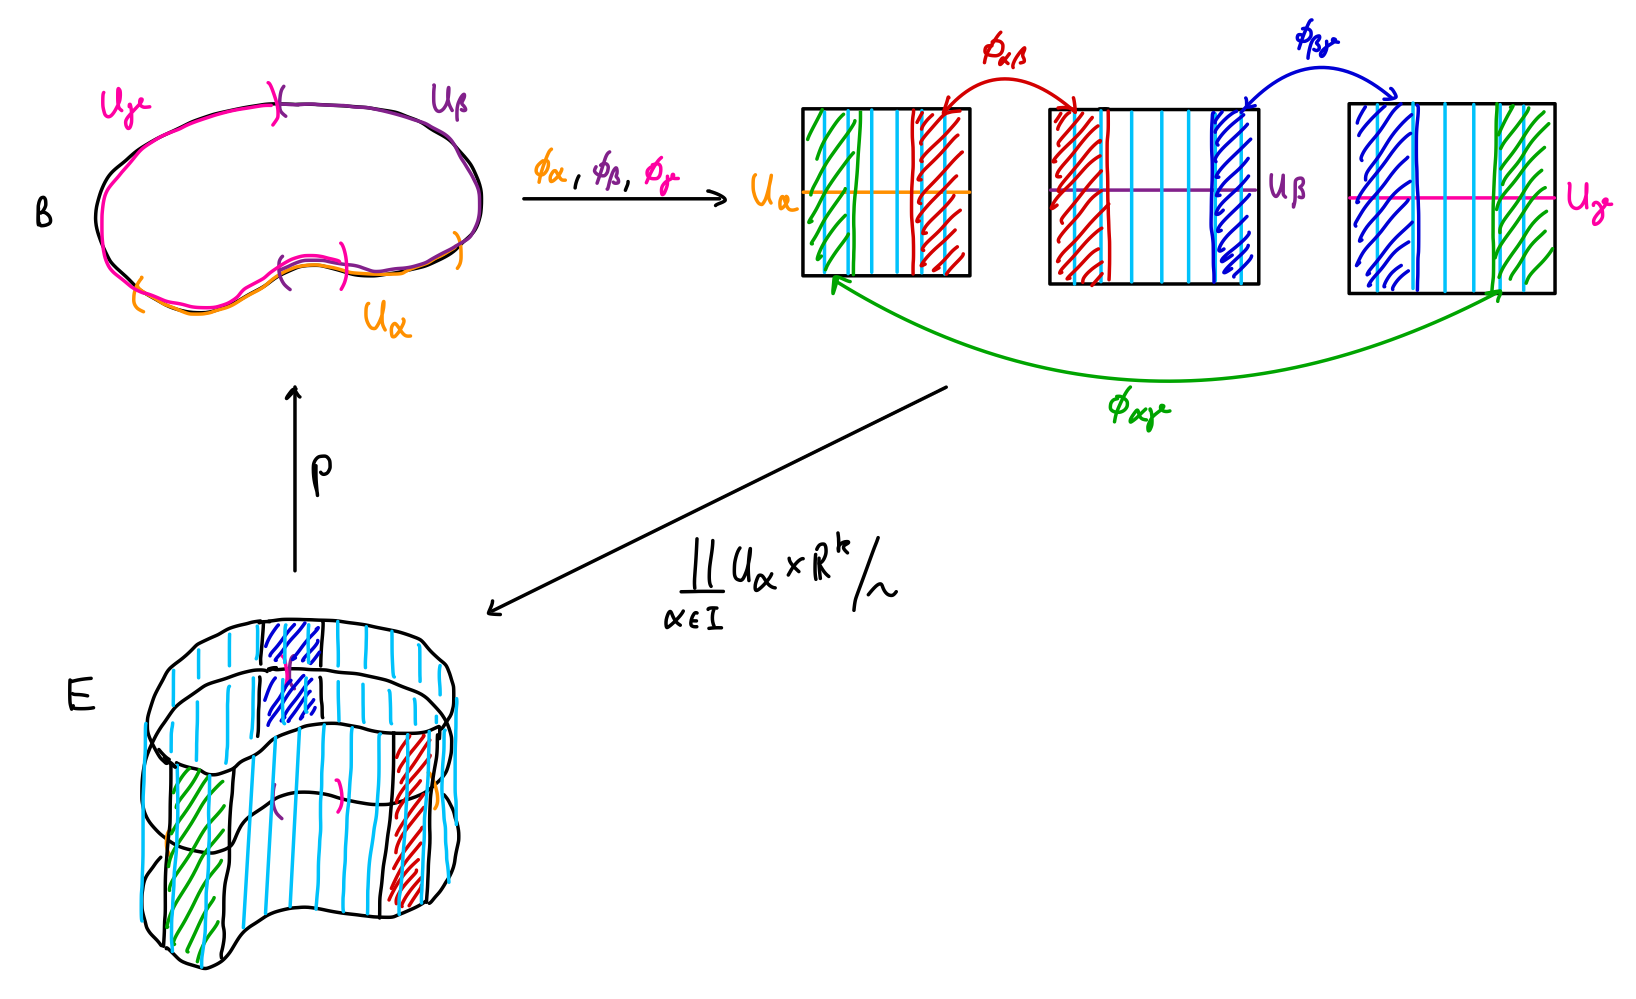 U𝛾 U_β
B
U_α
ϕ_α, ϕ_β, ϕ_γ
ϕ_αβ ϕ_βγ
U_α U_β U_γ
ϕ_αγ
p
∐ U_α × ℝ^k / ~
α ∈ I
E